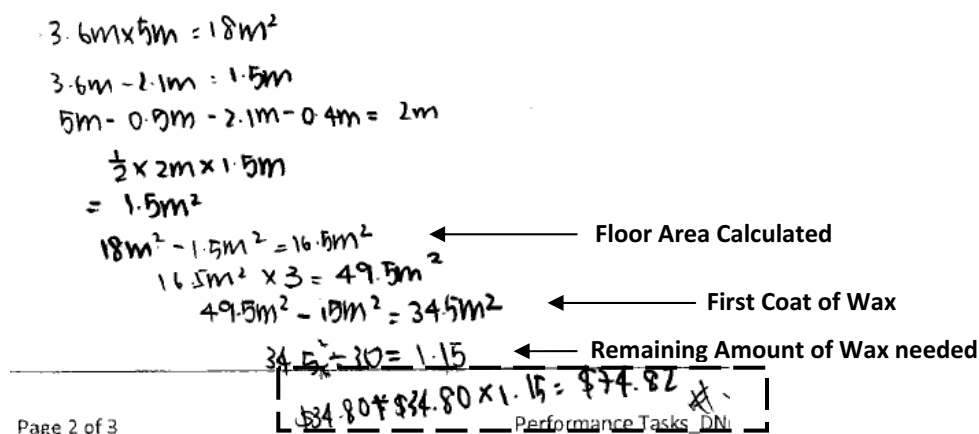 3.6m×5m = 18m²
3.6m - 2.1m = 1.5m
5m - 0.5m - 2.1m - 0.4m = 2m
½ × 2m × 1.5m
= 1.5m²
18m² - 1.5m² = 16.5m² Floor Area Calculated
16.5m² × 3 = 49.5m²
49.5m² - 15m² = 34.5m² First Coat of Wax
34.5m² ÷ 30 = 1.15 Remaining Amount of Wax needed
$34.80 + $34.80 × 1.15 = $74.82
Page 2 of 3 Performance Tasks_DN